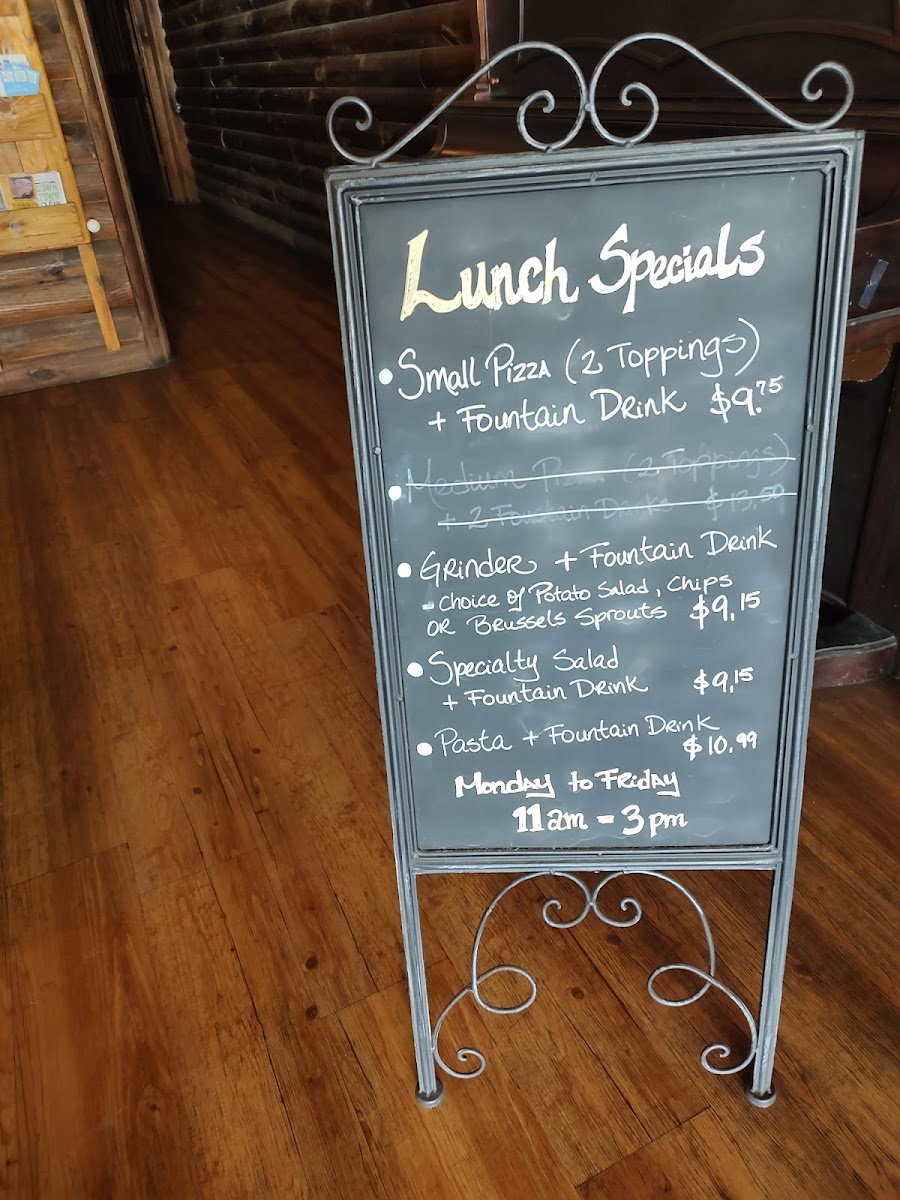 Lunch Specials
• Small Pizza (2 Toppings)
+ Fountain Drink $9.75
• Medium Pizza (2 Toppings)
+ 2 Fountain Drinks $13.50
• Grinder + Fountain Drink
- Choice of Potato Salad, Chips
or Brussels Sprouts $9.15
• Specialty Salad
+ Fountain Drink $9.15
• Pasta + Fountain Drink
$10.99
Monday to Friday
11am - 3pm